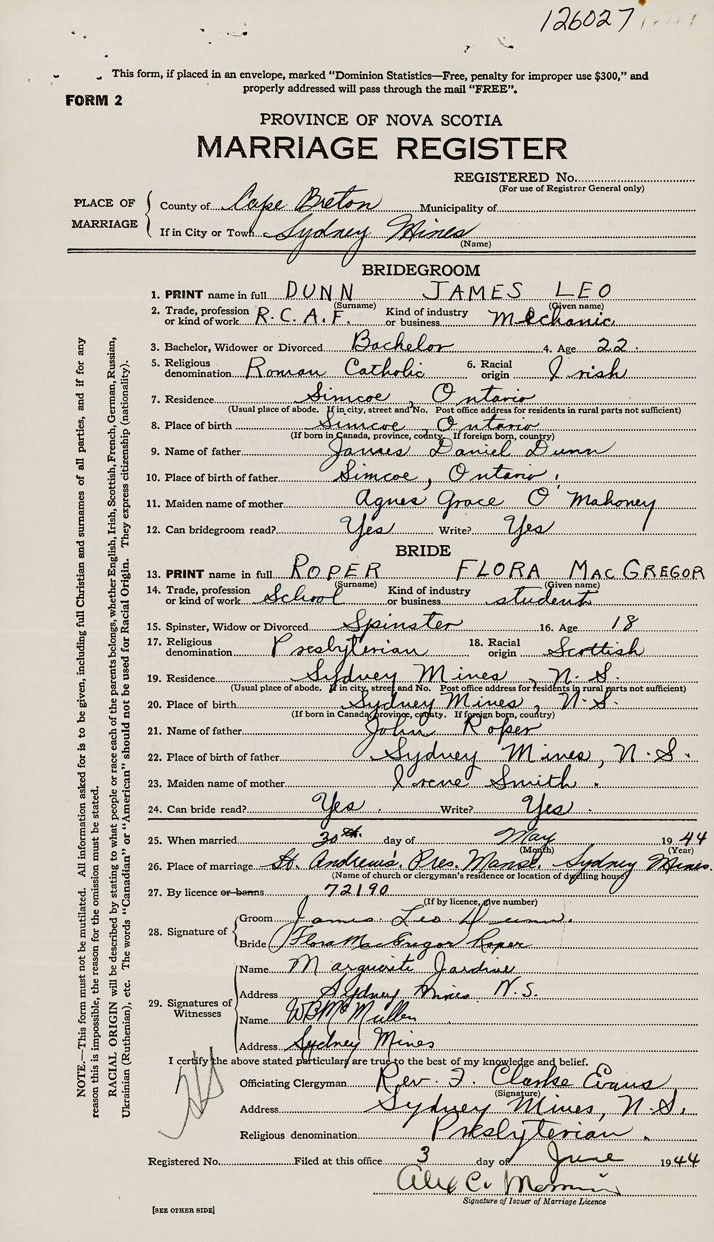 126027
This form, if placed in an envelope, marked "Dominion Statistics—Free, penalty for improper use $300," and
properly addressed will pass through the mail "FREE".
FORM 2
PROVINCE OF NOVA SCOTIA
MARRIAGE REGISTER
REGISTERED No.
(For use of Registrar General only)
PLACE OF MARRIAGE
County of Cape Breton Municipality of
If in City or Town Sydney Mines
(Name)
BRIDEGROOM
1. PRINT name in full DUNN JAMES LEO
(Surname) (Given name)
2. Trade, profession or kind of work R.C.A.F. Kind of industry or business Mechanic
3. Bachelor, Widower or Divorced Bachelor 4. Age 22.
5. Religious denomination Roman Catholic 6. Racial origin Irish
7. Residence Simcoe, Ontario
(Usual place of abode. If in city, street and No. Post office address for residents in rural parts not sufficient)
8. Place of birth Simcoe, Ontario
(If born in Canada, province, county. If foreign born, country)
9. Name of father James Daniel Dunn
10. Place of birth of father Simcoe, Ontario.
11. Maiden name of mother Agnes Grace O'Mahoney
12. Can bridegroom read? Yes Write? Yes
BRIDE
13. PRINT name in full ROPER FLORA MACGREGOR
(Surname) (Given name)
14. Trade, profession or kind of work School Kind of industry or business student
15. Spinster, Widow or Divorced Spinster 16. Age 18
17. Religious denomination Presbyterian 18. Racial origin Scottish
19. Residence Sydney Mines, N.S.
(Usual place of abode. If in city, street and No. Post office address for residents in rural parts not sufficient)
20. Place of birth Sydney Mines, N.S.
(If born in Canada, province, county. If foreign born, country)
21. Name of father John Roper
22. Place of birth of father Sydney Mines, N.S.
23. Maiden name of mother Irene Smith.
24. Can bride read? Yes. Write? Yes.
25. When married 30th day of May 1944
(Month) (Year)
26. Place of marriage St. Andrews, Pres. Manse, Sydney Mines.
(Name of church or clergyman's residence or location of dwelling house)
27. By licence or banns 72190
(If by licence, give number)
28. Signature of
Groom James Leo Dunn.
Bride Flora MacGregor Roper
29. Signatures of Witnesses
Name Marguerite Jardine
Address Sydney Mines N.S.
Name WB McMullen
Address Sydney Mines
I certify the above stated particulars are true to the best of my knowledge and belief.
Officiating Clergyman Rev. F. Clarke Evans
(Signature)
Address Sydney Mines, N.S.
Religious denomination Presbyterian.
Registered No. Filed at this office 3 day of June 1944
Alex C.
Signature of Issuer of Marriage Licence
[SEE OTHER SIDE]
NOTE.—This form must not be mutilated. All information asked for is to be given, including full Christian and surnames of all parties, and if for any
reason this is impossible, the reason for the omission must be stated.
RACIAL ORIGIN will be described by stating to what people or race each of the parents belongs, whether English, Irish, Scottish, French, German, Russian,
Ukrainian (Ruthenian), etc. The words "Canadian" or "American" should not be used for Racial Origin. They express citizenship (nationality).